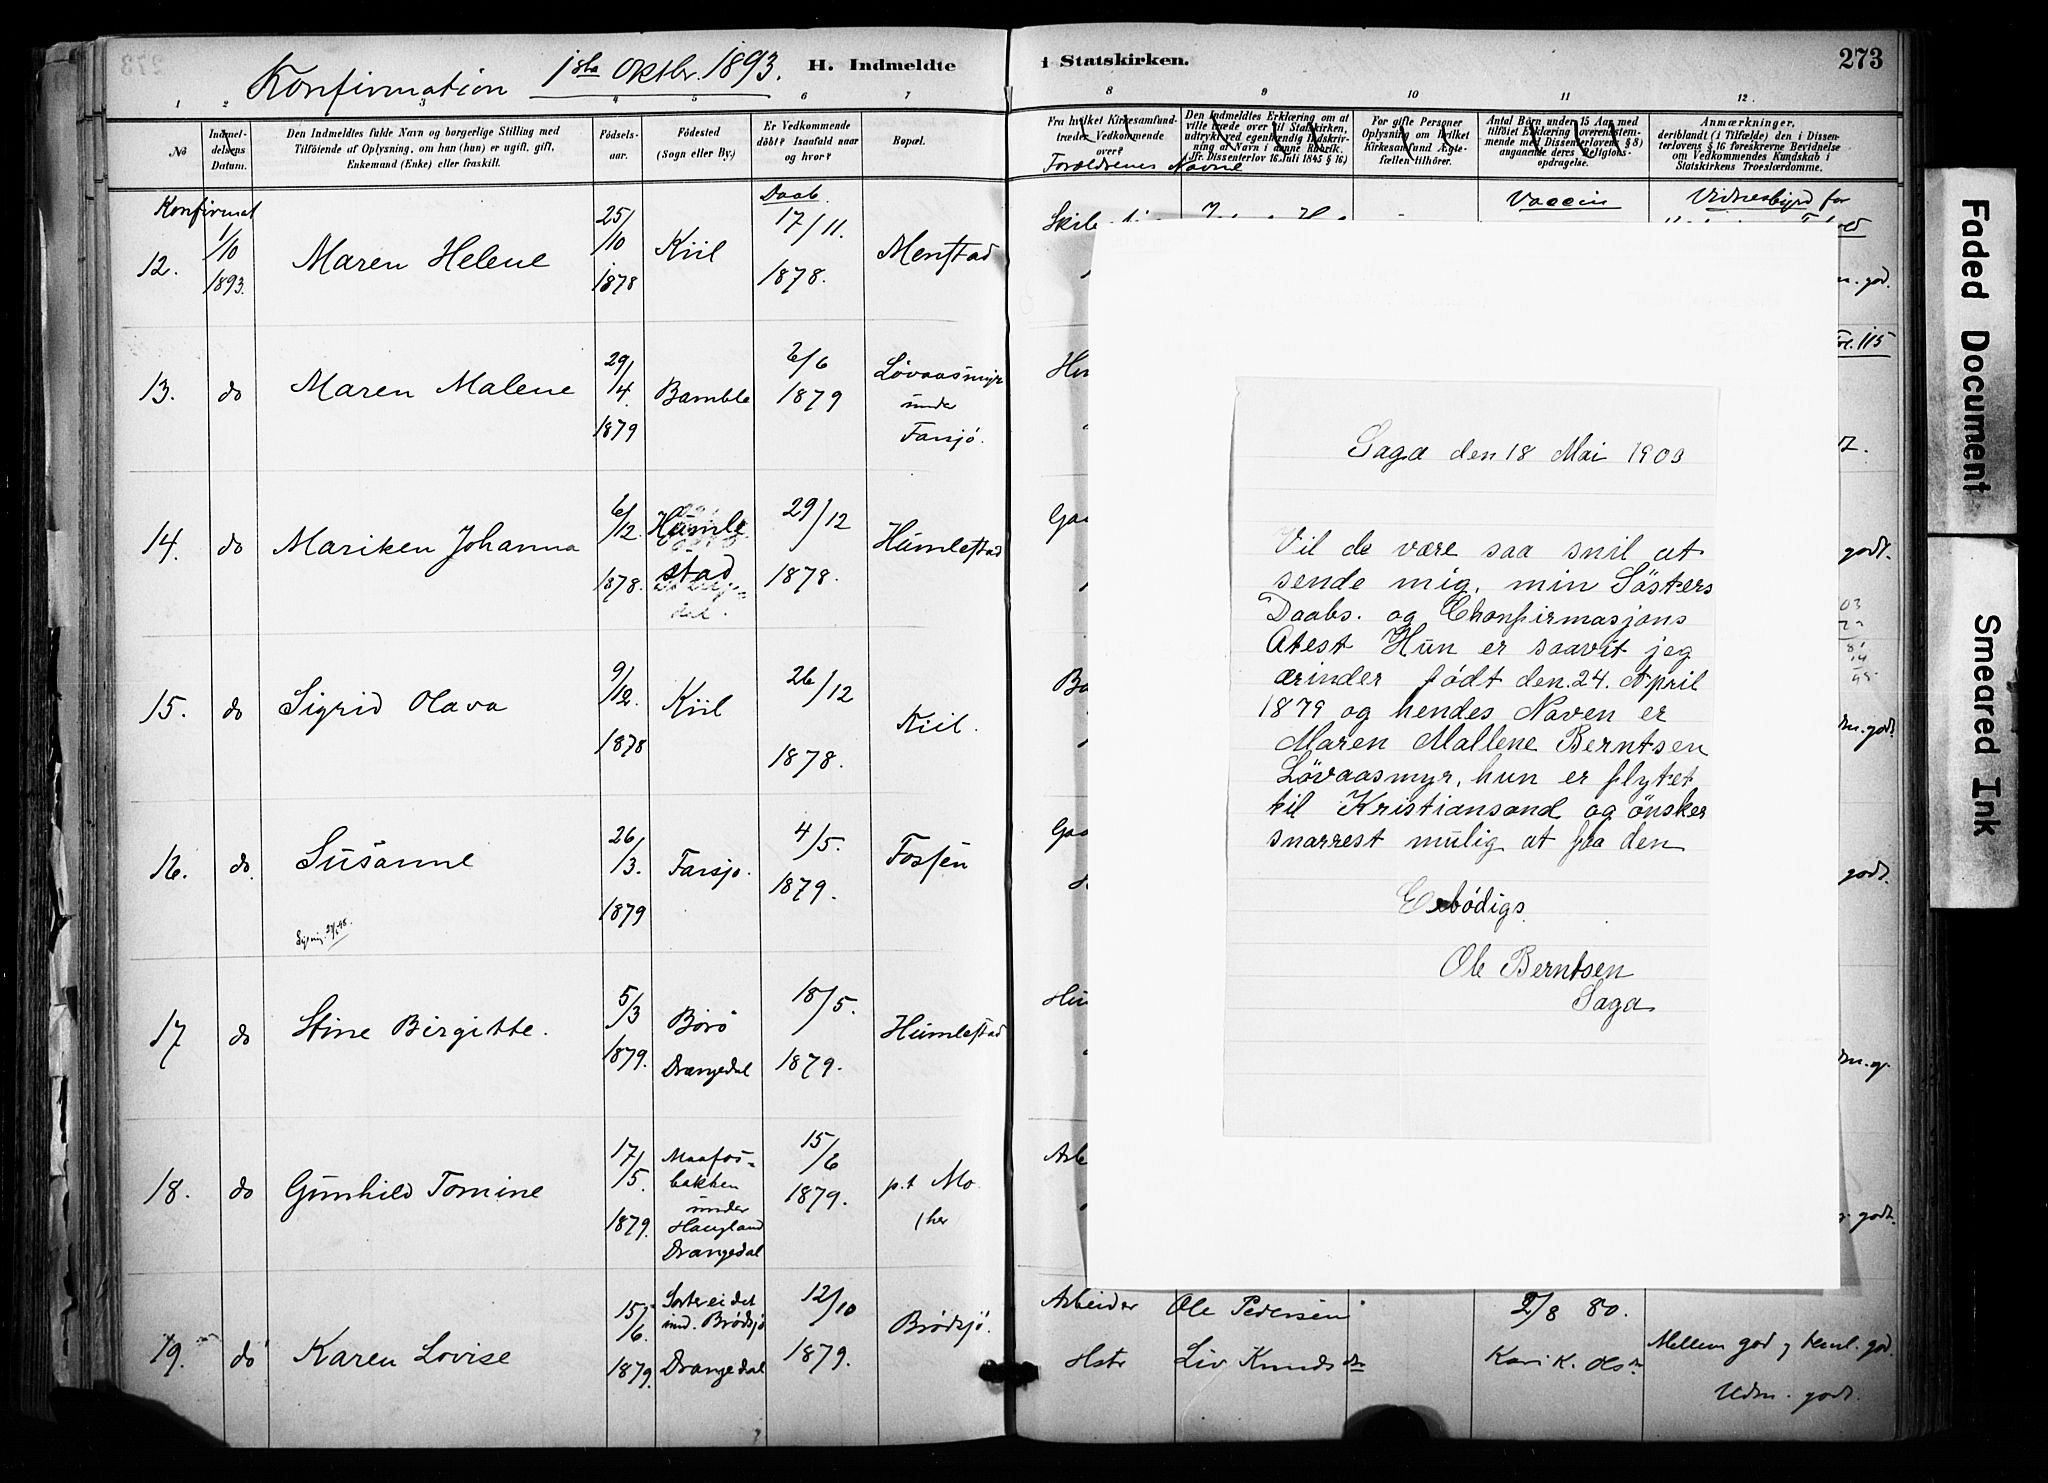 Konfirmation 1ste Oktbr. 1893.
H. Indmeldte i Statskirken.
273
1 2 3 4 5 6 7 8 9 10 11 12.
No
Indmel-
delsens
Datum.
Den Indmeldtes fulde Navn og borgerlige Stilling med
Tilføiende af Oplysning, om han (hun) er ugift, gift,
Enkemand (Enke) eller fraskilt.
Fødsels-
aar.
Fødested
(Sogn eller By.)
Er Vedkommende
døbt? Isaafald naar
og hvor?
Bopæl.
Fra hvilket Kirkesamfund
træder Vedkommende
over?
Forældrenes Navne
Den Indmeldtes Erklæring om at
ville træde over til Statskirken,
udtrykt ved egenhændig Indskriv-
ning af Navn i denne Rubrik.
(Jfr. Dissenterlov 16 Juli 1845 § 16)
For gifte Personer
Oplysning om hvilket
Kirkesamfund Ægte-
fællen tilhører.
Antal Børn under 15 Aar, med
tilføiet Erklæring (overenstem-
mende med Dissenterlovens § 8)
angaaende deres Religions-
opdragelse.
Anmærkninger,
deriblandt (i Tilfælde) den i Dissen-
terlovens § 16 foreskrevne Bevidnelse
om Vedkommendes Kundskab i
Statskirkens Troeslærdomme.
Konfirmat
Daab
Vaccin
Vidnesbyrd for
12.
1/10
1893.
Maren Helene
25/10
1878
Kiil
17/11.
1878.
Menstad
god.
13.
do
Maren Malene
29/4.
1879
Bamble
2/6
1879
Løvaasmyr
under
Farsjø.
Fol. 115
14.
do
Mariken Johanna
6/12.
1878.
Humle
stad
29/12
1878.
Humlestad
godt.
15.
do
Sigrid Olava
9/12.
1878
Kiil
26/12
1878.
Kiil.
god.
16.
do.
Susanne
26/3.
1879
Farsjø.
4/5.
1879.
Fossen
godt.
17
do
Stine Birgitte.
5/3
1879.
Børø
Drangedal
18/5.
1879.
Humlestad
18.
do
Gunhild Tomine
17/5.
1879.
Maafos-
bakken
under
Haugland
Drangedal
15/6
1879.
p.t Mo
(her
godt.
19.
do
Karen Lovise
15/6.
1879.
Sorteeidet
und. Brødsjø
Drangedal
12/10
1879.
Brødsjø.
Arbeider
Ole Pedersen
Hstr
Liv Knudsdtr
2/8 80.
Kari K. Olsn
Mellem god og teml. god.
Udm. godt.
Saga den 18 Mai 1903
Vil de være saa snil at
sende mig, min Søsters
Daabs. og Chonfirmasjons
Atest Hun er saavit jeg
ærinder født den. 24. April
1879 og hendes Naven er
Maren Mallene Berntsen
Løvaasmyr, hun er flytet
til Kristiansand og ønsker
snarrest mulig at faa den
Erbødigs
Ole Berntsen
Saga
Faded Document
Smeared Ink